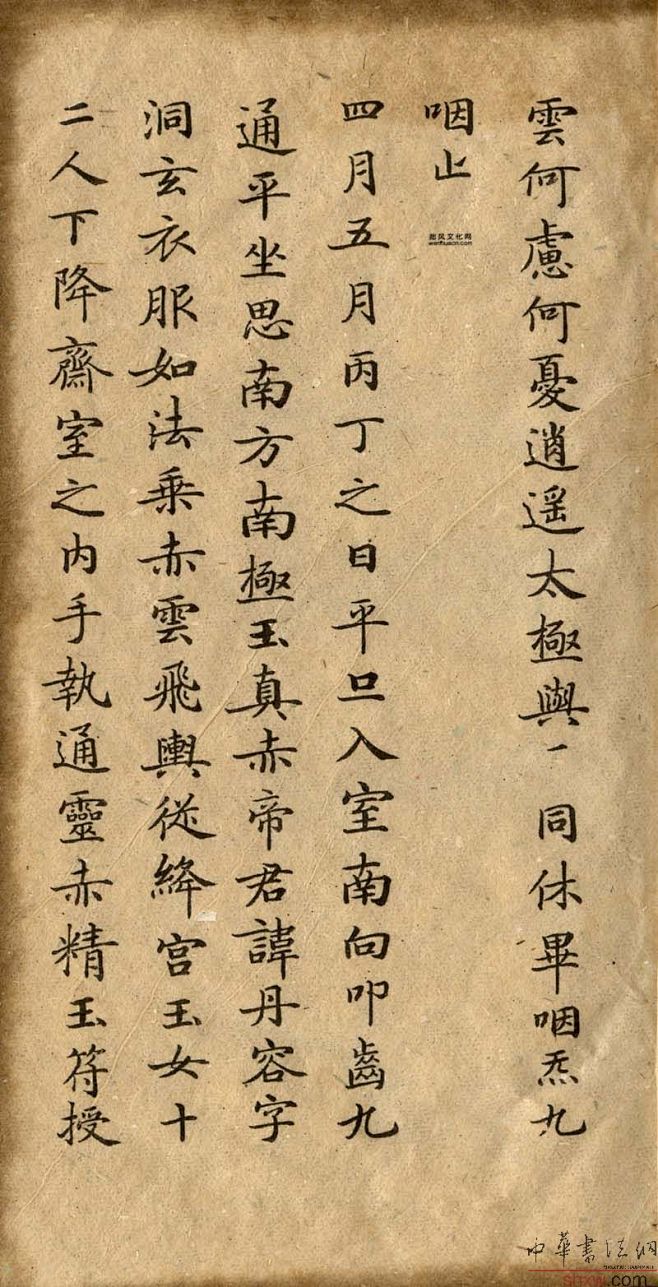 雲何慮何憂逍遥太極與一同休畢咽炁九
咽止
四月五月丙丁之日平旦入室南向叩齒九
通平坐思南方南極玉真赤帝君諱丹容字
洞玄衣服如法乗赤雲飛輿従絳宫玉女十
二人下降齋室之内手執通靈赤精玉符授
中華書法網
shxw.com